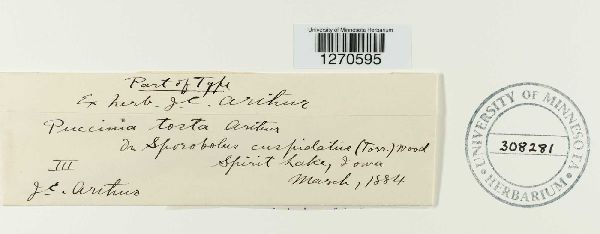 University of Minnesota Herbarium
1270595
Part of Type
Ex herb. J.C. Arthur
Puccinia tosta Arthur
On Sporobolus cuspidatus (Torr.) Wood
III
Spirit Lake, Iowa
March, 1884
J.C. Arthur
UNIVERSITY OF MINNESOTA
308281
HERBARIUM